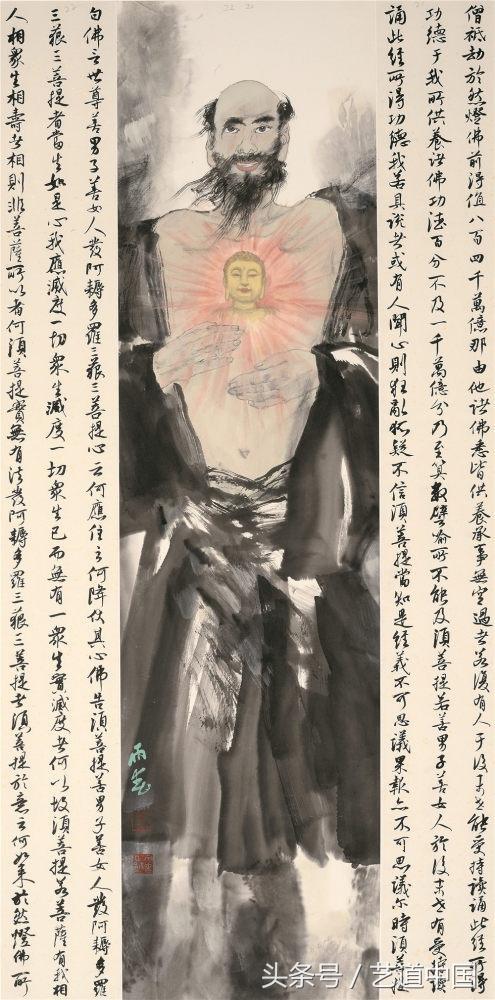 僧祗劫於然燈佛前得值八百四千萬億那由他諸佛悉皆供養承事無空過者若復有人于後末世能受持讀誦此經所得
功德于我所供養諸佛功德百分不及一千萬億分乃至算數譬喻所不能及須菩提若善男子善女人於後末世有受持讀
誦此經所得功德我若具說者或有人聞心則狂亂狐疑不信須菩提當知是經義不可思議果報亦不可思議尔時須菩提
白佛言世尊善男子善女人發阿耨多羅三藐三菩提心云何應住云何降伏其心佛告須菩提善男子善女人發阿耨多羅
三藐三菩提者當生如是心我應滅度一切衆生滅度一切衆生已而無有一衆生實滅度者何以故須菩提若菩薩有我相
人相衆生相壽者相則非菩薩所以者何須菩提實無有法發阿耨多羅三藐三菩提者須菩提於意云何如来於然燈佛所
雨
头条号/艺道中国